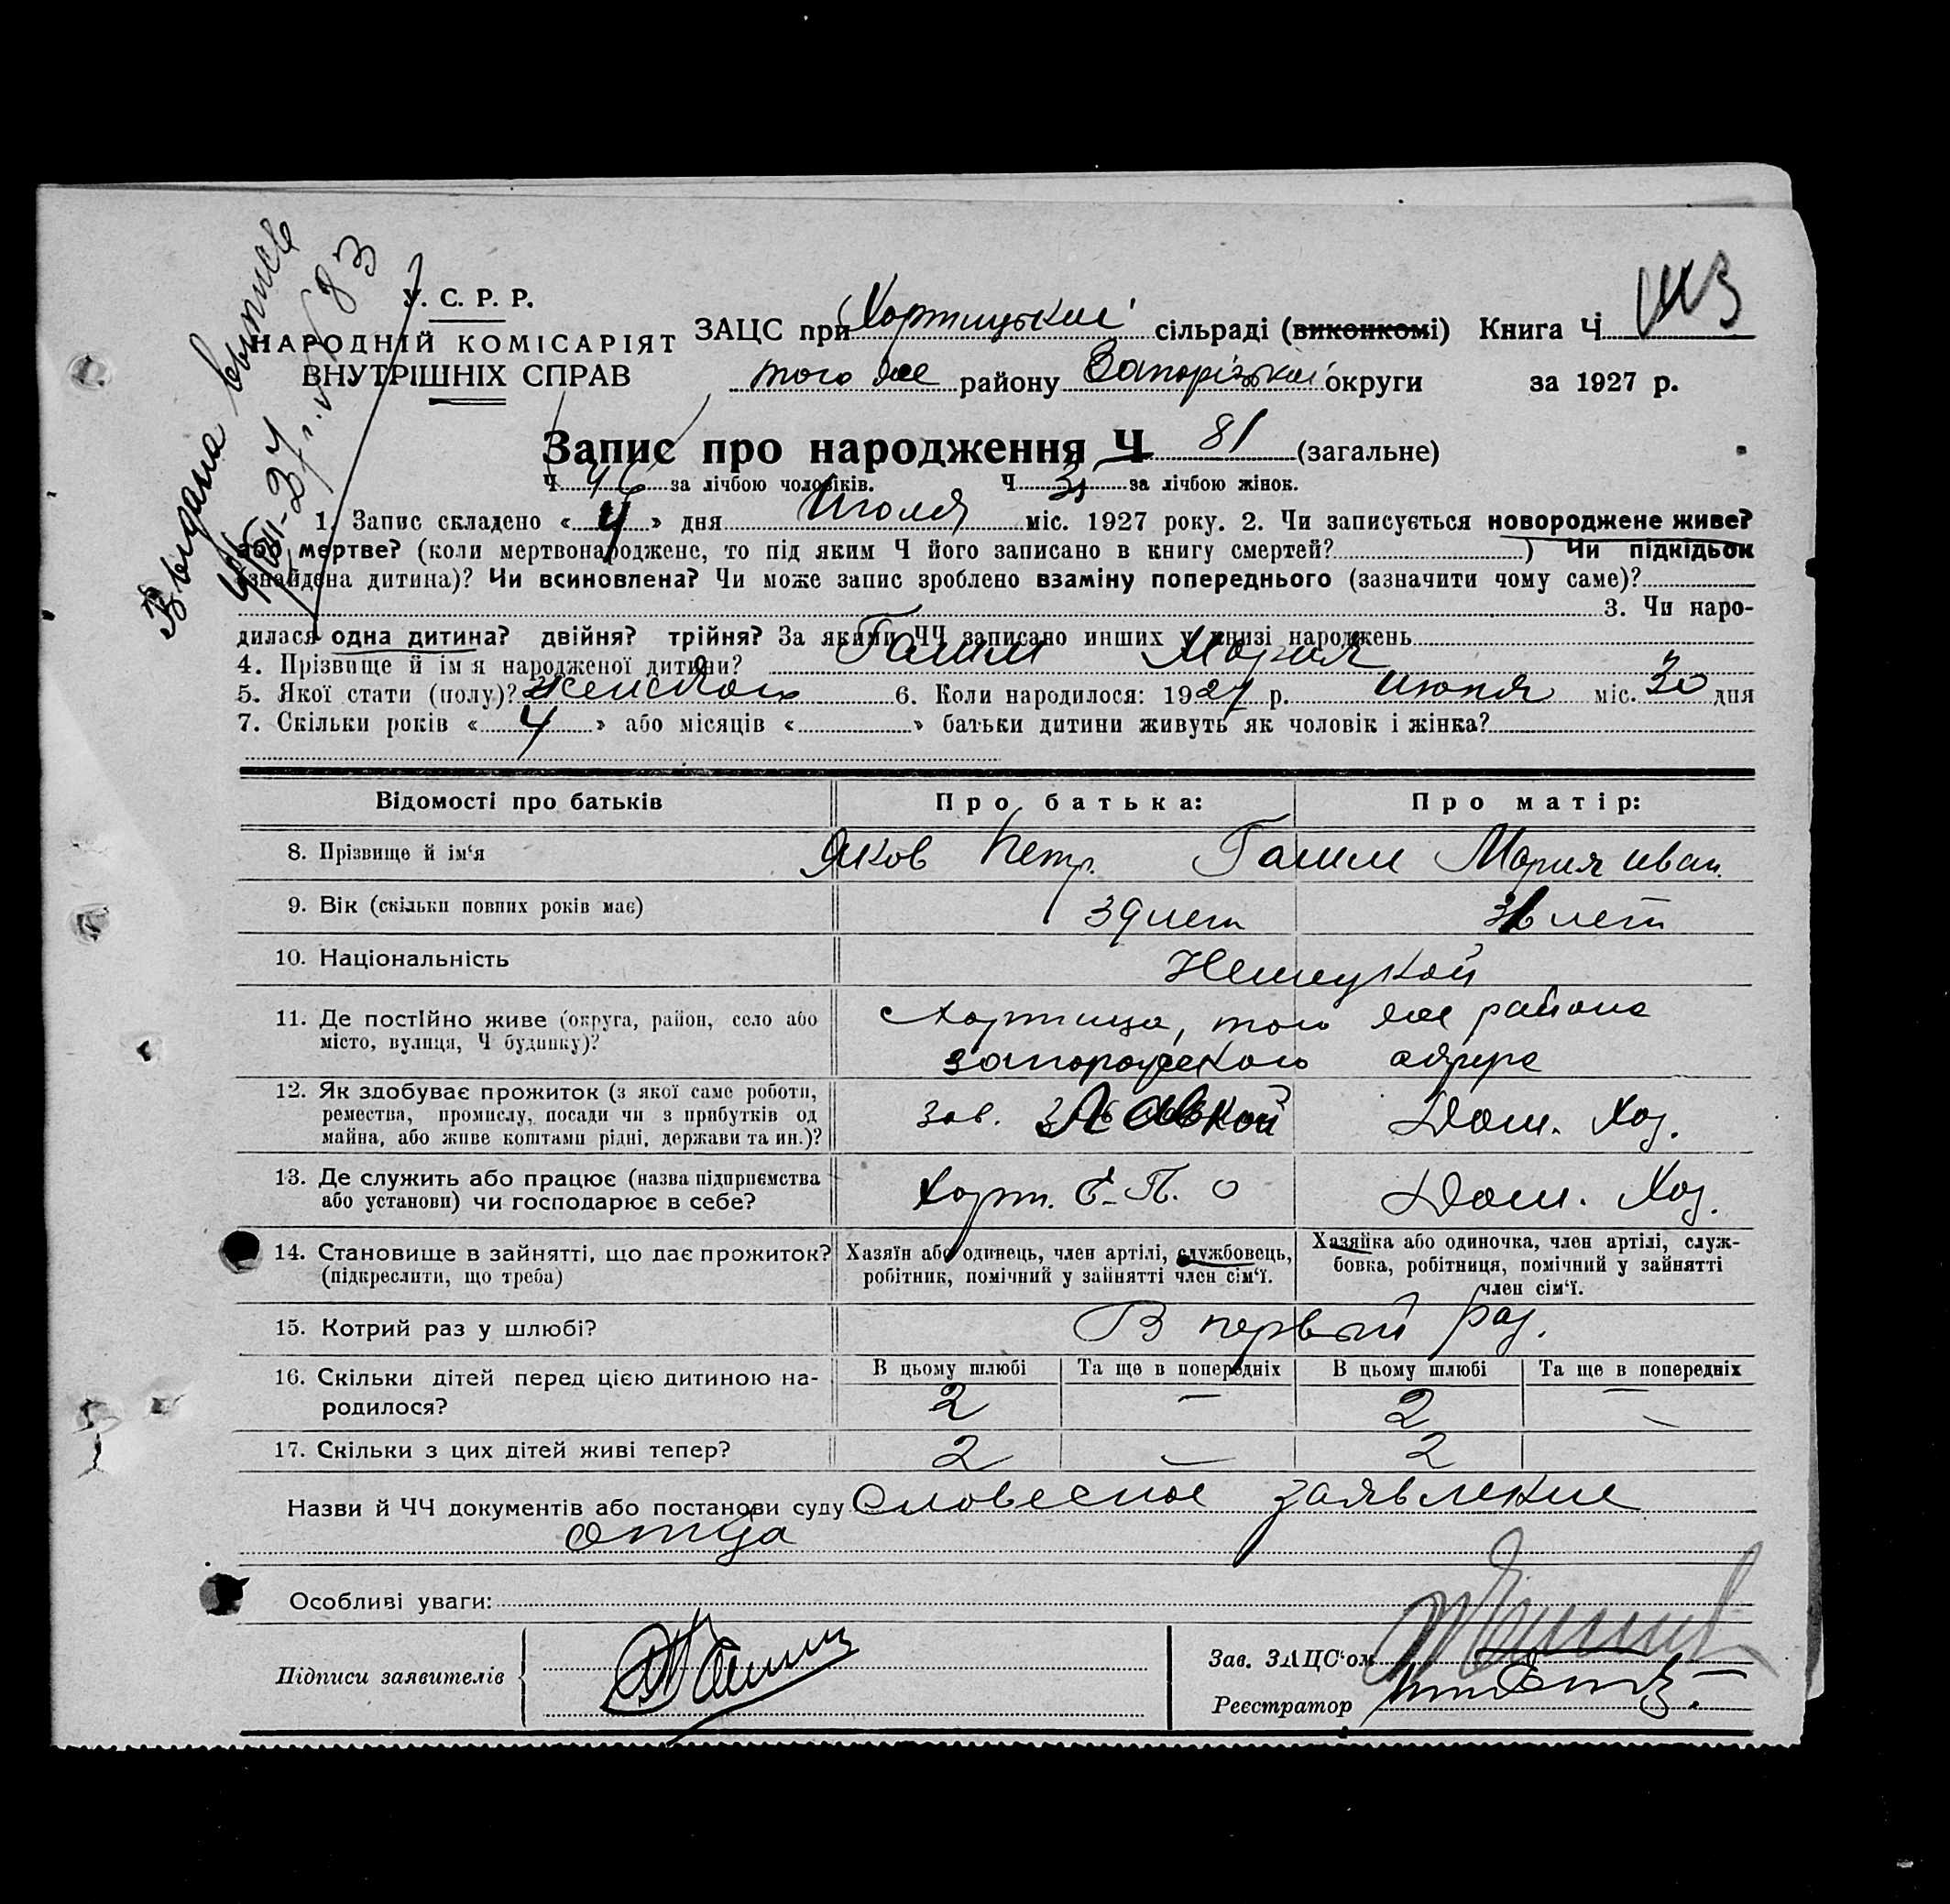 Выдана выпись
4/VIII-27 г. № 83
У. С. Р. Р.
НАРОДНІЙ КОМІСАРІЯТ
ВНУТРІШНІХ СПРАВ
ЗАЦС при Хортицькій сільраді (виконкомі) Книга Ч
того же району Запорізької округи за 1927 р.
Запис про народження Ч 81 (загальне)
Ч 46 за лічбою чоловіків. Ч за лічбою жінок.
1. Запис складено « 4 » дня Июля міс. 1927 року. 2. Чи записується новороджене живе?
або мертве? (коли мертвонароджене, то під яким Ч його записано в книгу смертей? ) Чи підкідьок
(знайдена дитина)? Чи всиновлена? Чи може запис зроблено взаміну попереднього (зазначити чому саме)?
3. Чи наро-
дилася одна дитина? двійня? трійня? За якими ЧЧ записано инших у книзі народжень
4. Прізвище й ім'я народженої дитини? Гамм Мария
5. Якої стати (полу)? женского 6. Коли народилося: 1927 р. Июня міс. 30 дня
7. Скільки років « 4 » або місяців « » батьки дитини живуть як чоловік і жінка?
Відомості про батьків Про батька: Про матір:
8. Прізвище й ім'я Яков Петр. Гамм Мария Иван.
9. Вік (скільки повних років має) 39 лет 36 лет
10. Національність Немецкой
11. Де постійно живе (округа, район, село або Хортица, того же района
місто, вулиця, Ч будинку)? Запорожского округа
12. Як здобуває прожиток (з якої саме роботи,
ремества, промислу, посади чи з прибутків од Зав. Лавкой Дом. Хоз.
майна, або живе коштами рідні, держави та ин.)?
13. Де служить або працює (назва підприємства Хорт. Е.П.О Дом. Хоз.
або установи) чи господарює в себе?
14. Становище в зайнятті, що дає прожиток? Хазяїн або одинець, член артілі, службовець, Хазяйка або одиночка, член артілі, служ-
(підкреслити, що треба) робітник, помічний у зайнятті член сім'ї. бовка, робітниця, помічний у зайнятті
член сім'ї.
15. Котрий раз у шлюбі? В первый раз.
16. Скільки дітей перед цією дитиною на- В цьому шлюбі Та ще в попередніх В цьому шлюбі Та ще в попередніх
родилося? 2 — 2 —
17. Скільки з цих дітей живі тепер? 2 — 2
Назви й ЧЧ документів або постанови суду Словесное заявление
отца
Особливі уваги:
Підписи заявителів
Зав. ЗАЦС'ом
Реєстратор